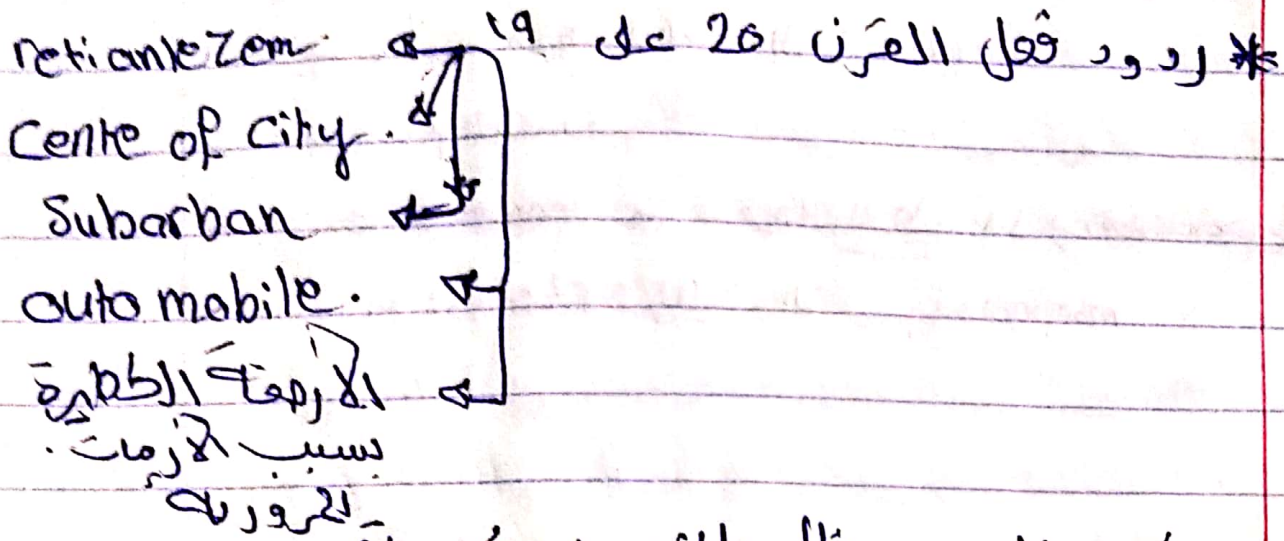 * ردود فعل القرن 20 على 19
retianlezem.
Cente of City.
Subarban
auto mobile.
الأزمة
بسبب الأزمات.
المرورية